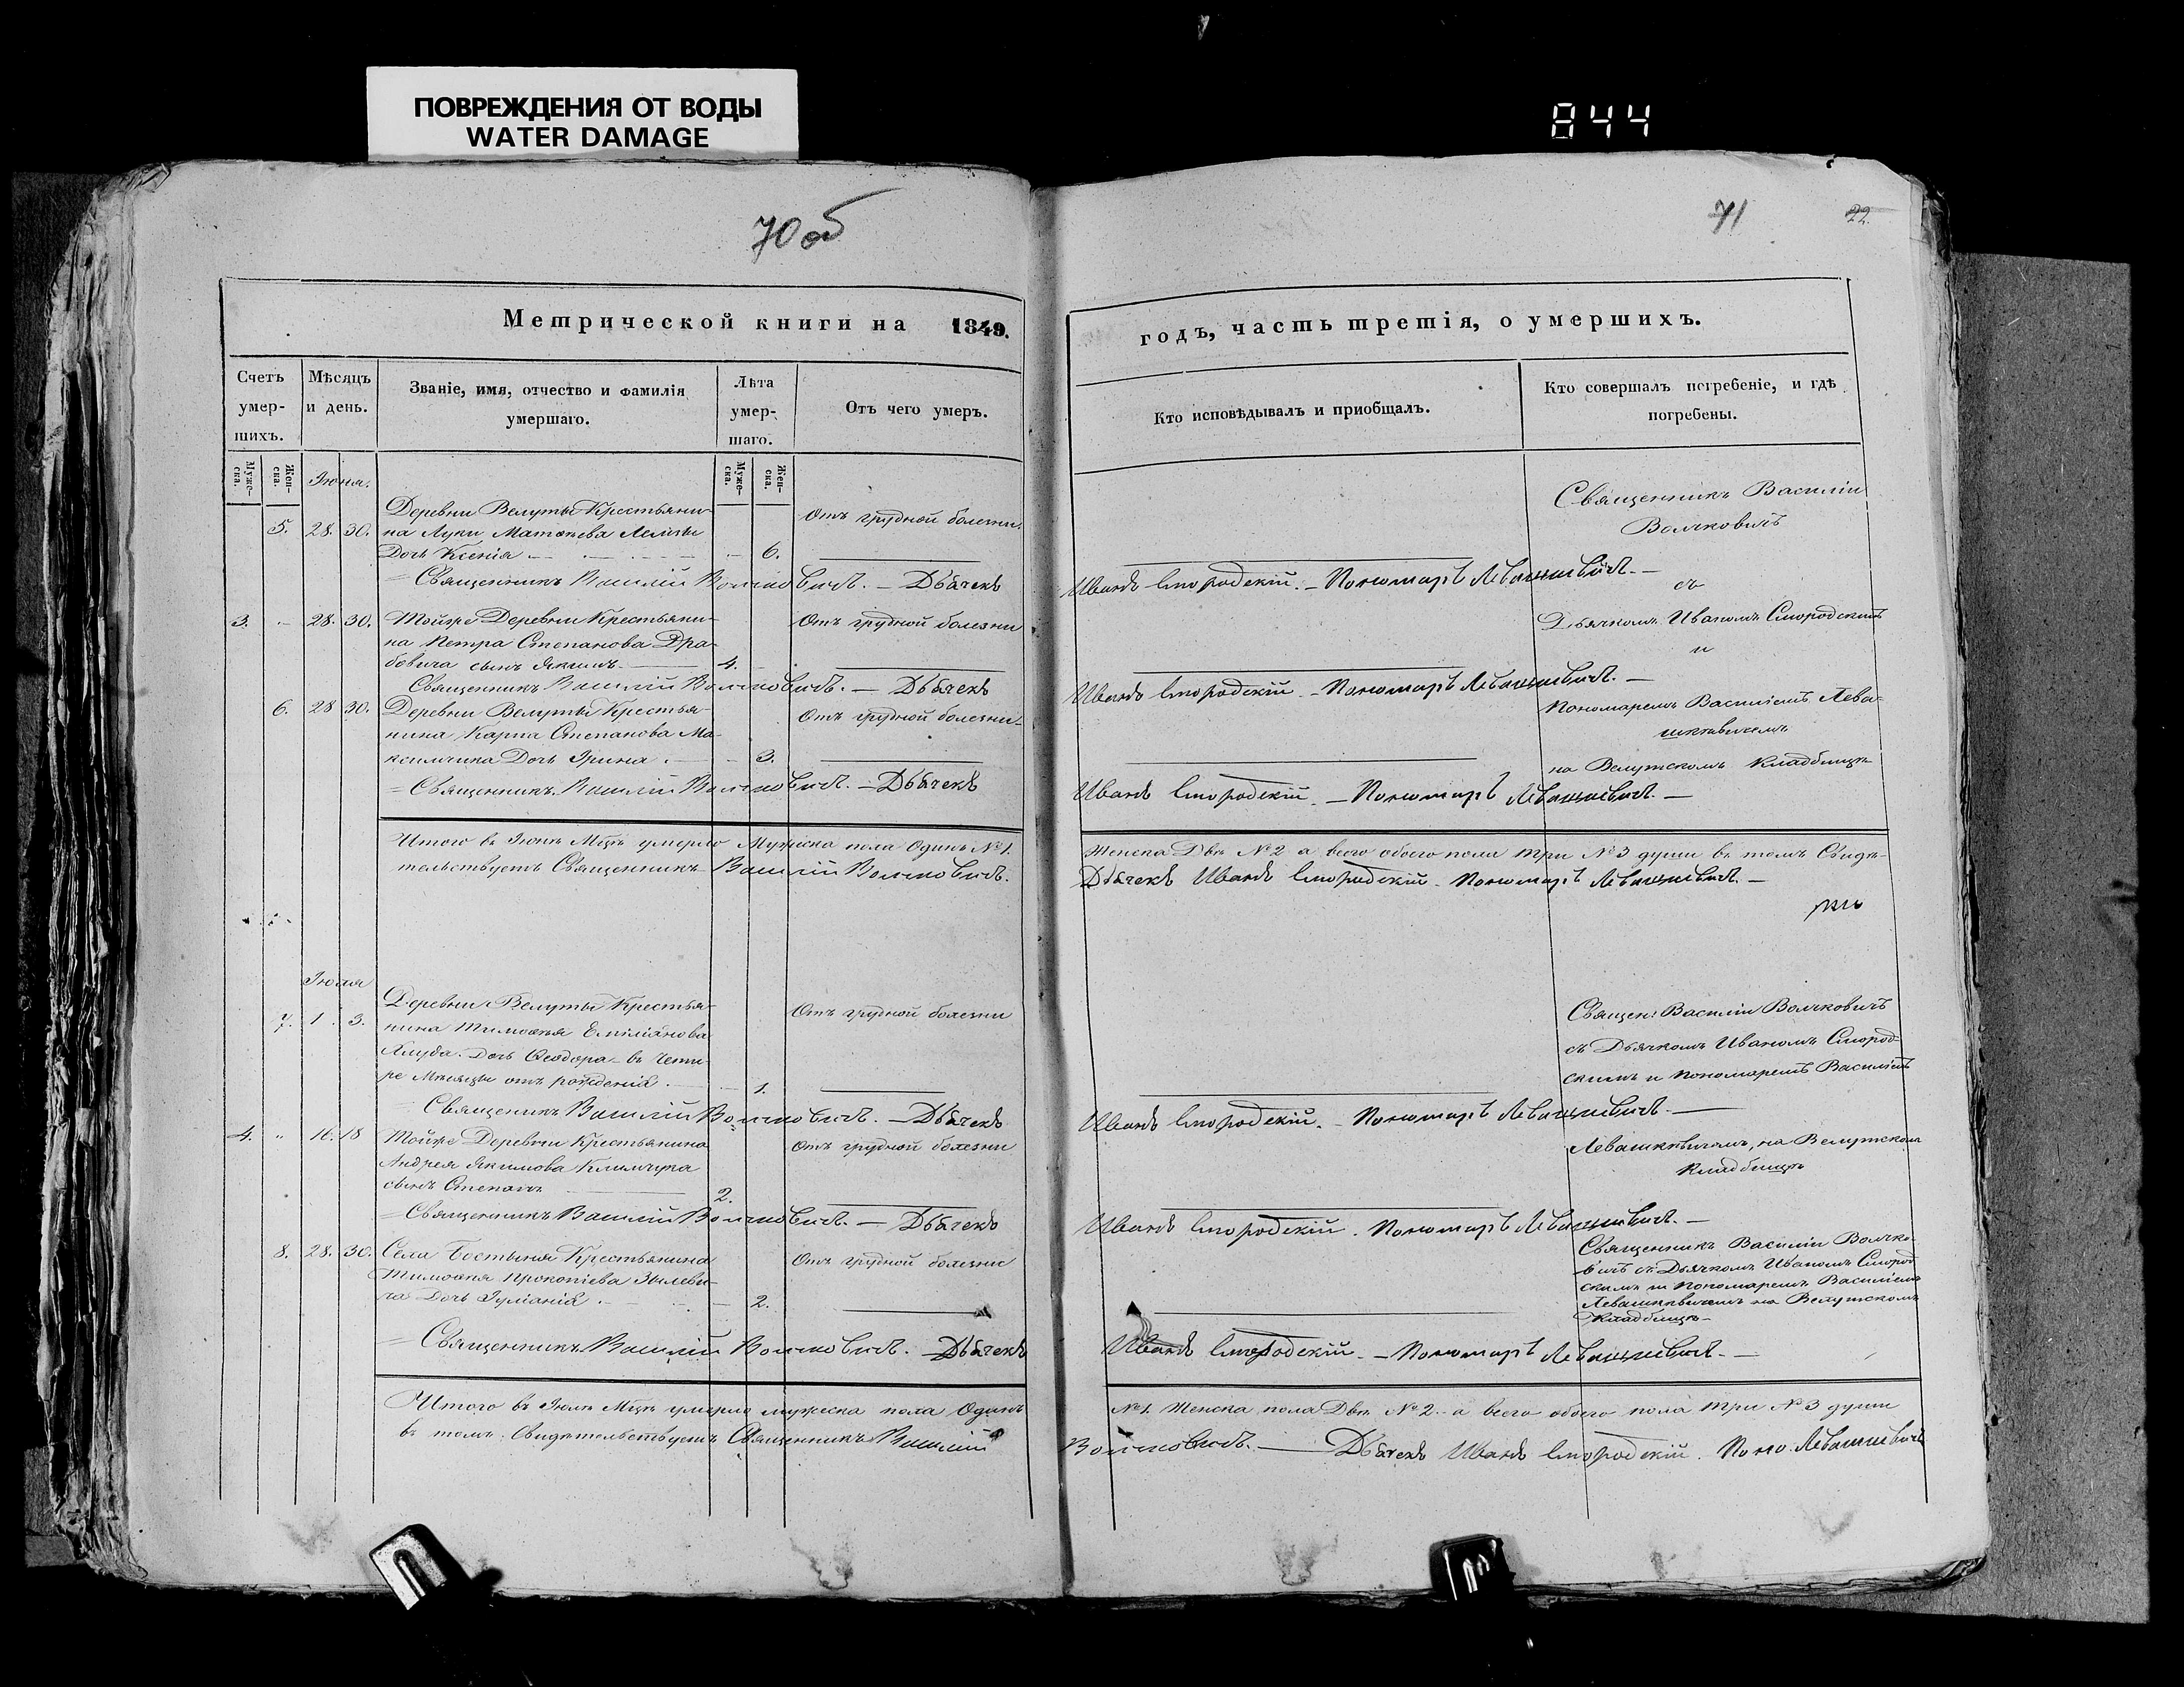 ПОВРЕЖДЕНИЯ ОТ ВОДЫ
WATER DAMAGE
844
70 об
71
22.
Метрической книги на 1849.
годъ, часть третія, о умершихъ.
Счетъ умер-шихъ.
Мѣсяцъ и день.
Званіе, имя, отчество и фамилія умершаго.
Лѣта умер-шаго.
Отъ чего умеръ.
Кто исповѣдывалъ и приобщалъ.
Кто совершалъ погребеніе, и гдѣ погребены.
Муже-ска.
Жен-ска.
Муже-ска.
Жен-ска.
Іюня.
5. 28. 30.
Деревни Велуты Крестьяни-
на Луки Матвеева
Дочь Ксенія 6.
Отъ грудной болезни.
Священникъ Василій
Волчковичъ
Священникъ Василій Волчковичъ. — Дьячекъ
Иванъ Смородскій. — Пономарь Левашкевичъ. —
съ
3. 28. 30.
Тойже Деревни Крестьяни-
на Петра Степанова Дра-
бовича сынъ Якимъ 4.
Отъ грудной болезни
Дьячкомъ Иваномъ Смородскимъ
и
Священникъ Василій Волчковичъ. — Дьячекъ
Иванъ Смородскій. — Пономарь Левашкевичъ. —
6. 28 30.
Деревни Велуты Крестья-
нина Карпа Степанова Ма-
ксимчика Дочь Ирина 3.
Отъ грудной болезни.
Пономаремъ Василіемъ Лева-
шкевичемъ
на Велутскомъ Кладбищѣ
Священникъ Василій Волчковичъ. — Дьячекъ
Иванъ Смородскій. — Пономарь Левашкевичъ. —
Итого въ Іюнѣ Мцѣ умерло Мужеска пола Одинъ №1.
Женска Двѣ №2 а всего обоего пола три №3 души въ томъ Свидѣ-
тельствуетъ Священникъ Василій Волчковичъ.
Дьячекъ Иванъ Смородскій. Пономарь Левашкевичъ. —
Іюля
7. 1. 3.
Деревни Велуты Крестья-
нина Тимофея Емиліанова
Хлуба Дочь Феодора въ четы-
ре Месяцы отъ рожденія. 1.
Отъ грудной болезни
Священ: Василій Волчковичъ
съ Дьячкомъ Иваномъ Смород-
скимъ и Пономаремъ Василіемъ
Священникъ Василій Волчковичъ. — Дьячекъ
Иванъ Смородскій. — Пономарь Левашкевичъ. —
4. „ 16. 18
Тойже Деревни Крестьянина
Андрея Якимова Климчука
сынъ Степанъ 2.
Отъ грудной болезни
Левашкевичемъ, на Велутскомъ
Кладбищѣ
Священникъ Василій Волчковичъ. — Дьячекъ
Иванъ Смородскій. Пономарь Левашкевичъ. —
8. 28. 30.
Села Бостыня Крестьянина
Тимофея Прокопіева
Дочь Іуліанія 2.
Отъ грудной болезни
Священникъ Василій Волчко-
вичъ съ Дьячкомъ Иваномъ Смород
скимъ и Пономаремъ Василіемъ
Левашкевичемъ на Велутскомъ
Кладбищѣ
Священникъ Василій Волчковичъ. Дьячекъ
Иванъ Смородскій. — Пономарь Левашкевичъ. —
Итого въ Іюлѣ Мцѣ умерло мужеска пола Одинъ
№1. Женска пола Двѣ №2. а всего обоего пола три №3 души
въ томъ Свидѣтельствуетъ Священникъ Василій
Волчковичъ. — Дьячекъ Иванъ Смородскій. Поно. Левашкевичъ